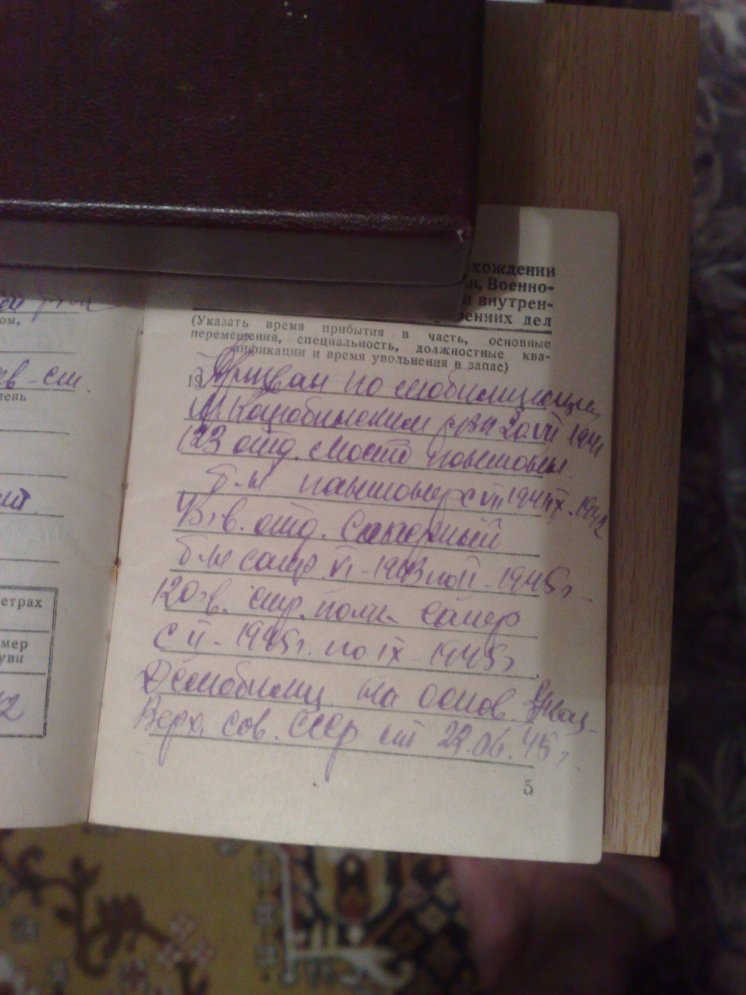 хождении
Военно-
и внутрен-
ренних дел
(Указать время прибытия в часть, основные
перемещения, специальность, должностные ква-
лификации и время увольнения в запас)
19 Призван по мобилизации
рвк 1941
123 отд. мосто понтонн.
б-н понтонер с VII 1941 IX. 1942
отд. Саперный
б-н сапер VI - 1943 по II - 1945 г.
120 гв. стр. полк сапер
с II - 1945 г. по IX - 1945 г.
Демобилиз на основ Указ
Верх. сов. СССР от 22.06.45 г.
5
ом,
ев-ст.
пень
етрах
мер
уви